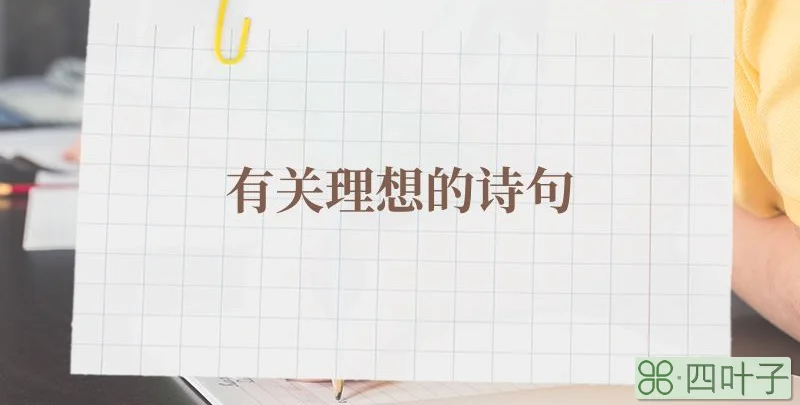 有关理想的诗句
四叶子